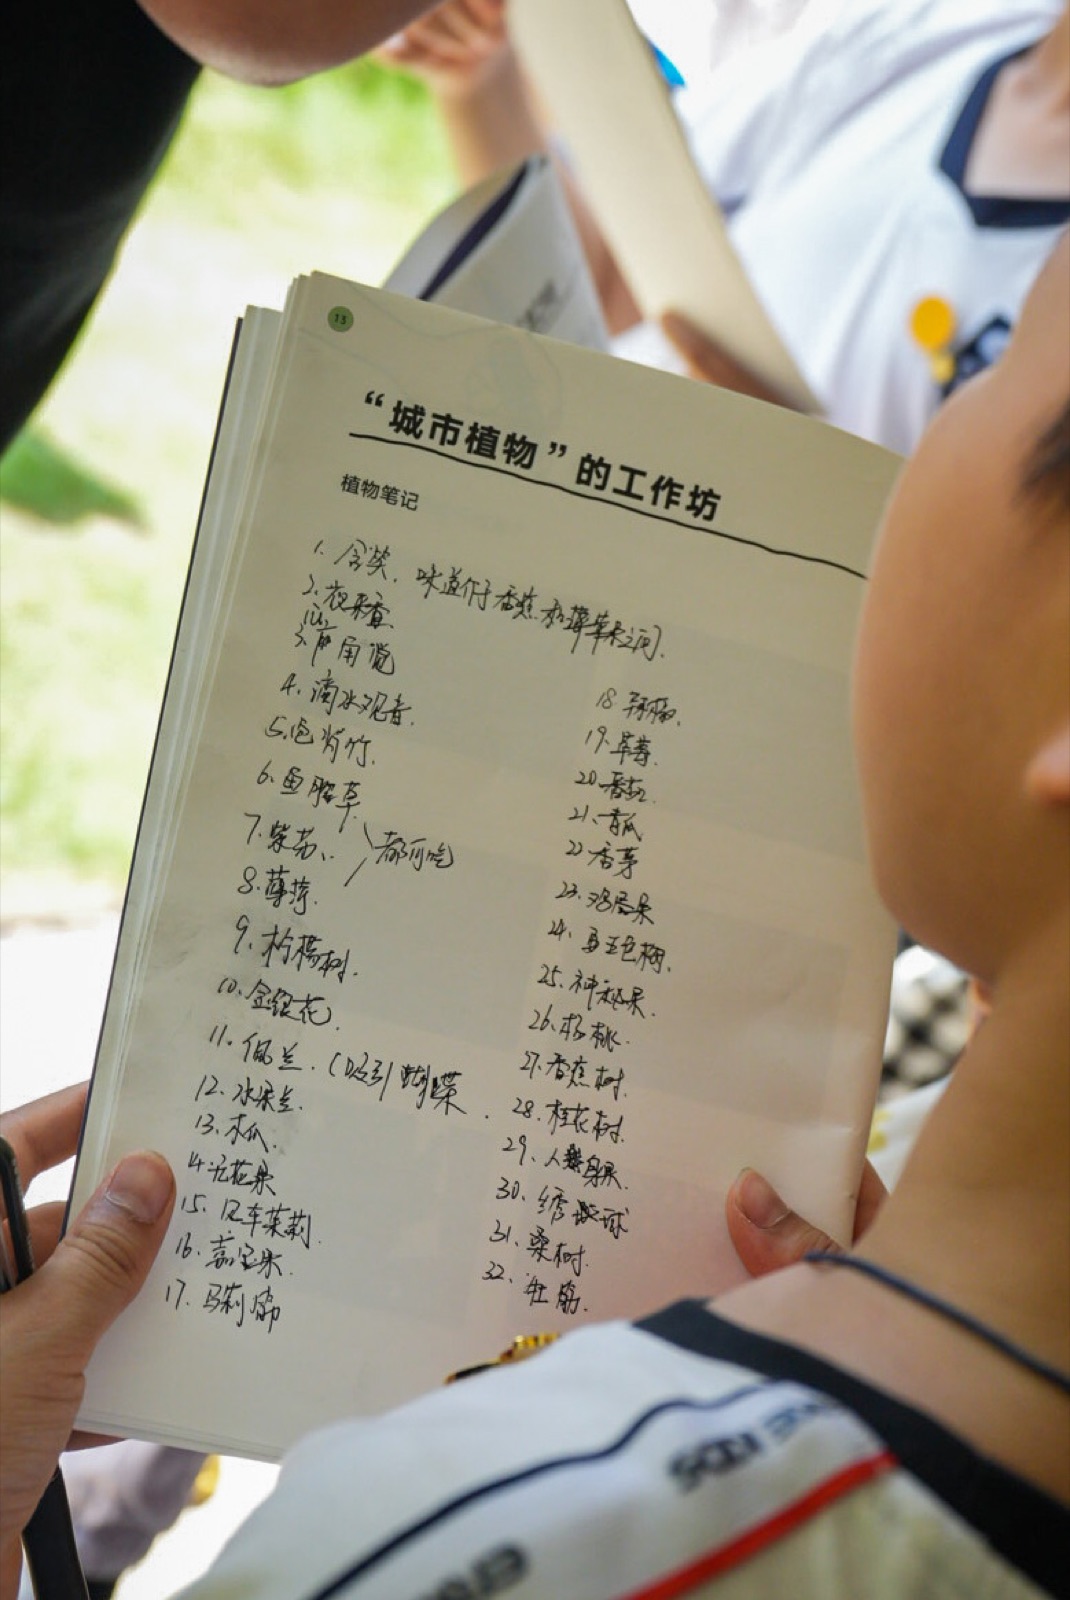 13
“城市植物”的工作坊
植物笔记
1. 含笑. 味道介于香蕉和苹果之间.
2. 夜来香.
3. 声角觉
4. 滴水观音.
5. 龟背竹.
6. 鱼腥草.
7. 紫苏. 都可吃
8. 薄荷.
9. 柠檬树.
10. 金银花.
11. 佩兰. (吸引蝴蝶.
12. 水果兰.
13. 木瓜.
14. 无花果
15. 风车茉莉.
16. 嘉宝果.
17. 马利筋
18. 辣椒.
19. 草莓.
20. 番茄.
21. 青瓜
22. 香茅
23. 鸡蛋果
24. 五色梅.
25. 神秘果.
26. 杨桃.
27. 香蕉树.
28. 桂花树.
29. 人参果.
30. 绣球
31. 桑树.
32. 牡荆.